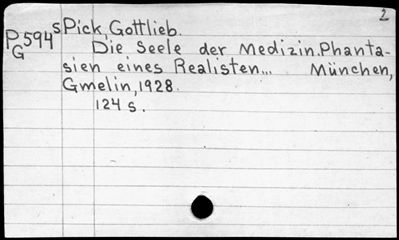 2
PG594s Pick, Gottlieb.
Die Seele der Medizin. Phanta-
sien eines Realisten... München,
Gmelin, 1928.
124 s.